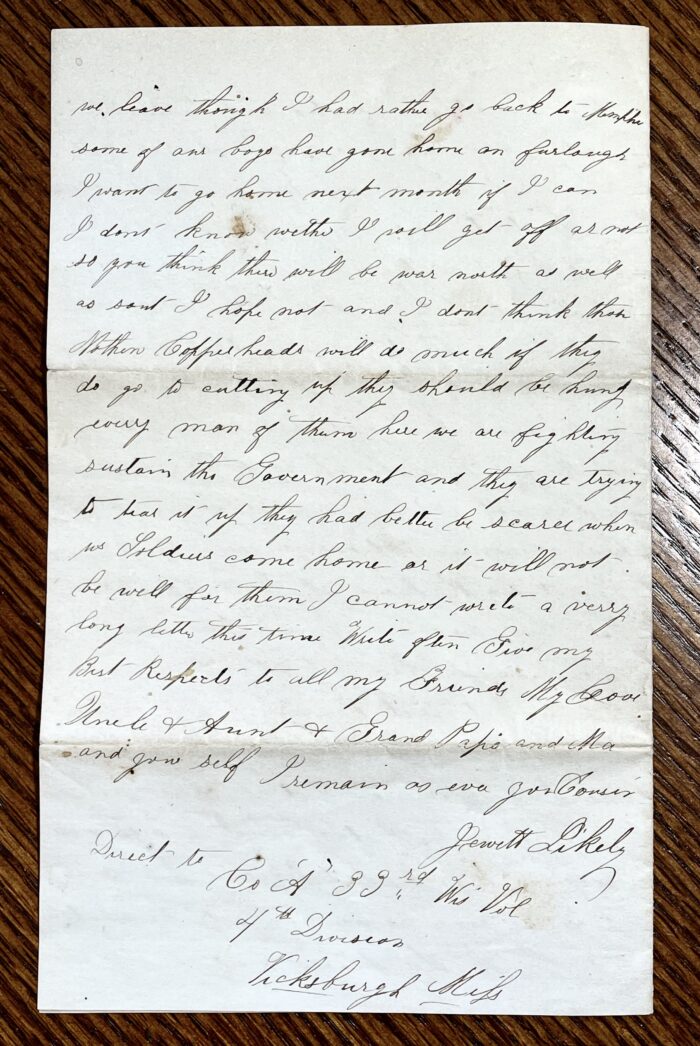 we leave though I had rathe go back to Memphi
some of our boys have gone home on furlough
I want to go home next month if I can
I dont know wethe I will get off or not
so you think thire will be war north as well
as sout I hope not and I dont think them
Nothen Copperheads will do much if they
do go to cutting up they should be hung
every man of them here we are fighting
sustain the Government and they are trying
to tear it up they had bette be scarce when
us Soldiers come home or it will not
be well for them I cannot write a verry
long lette this time Write often Give my
Best Respects to all my Friends My Love
Uncle & Aunt & Grand Papa and Ma
and your self I remain as eve your Cousin
Jewett Likely
Direct to
Co "A" 33rd Wis Vol
4th Division
Vicksburgh Miss